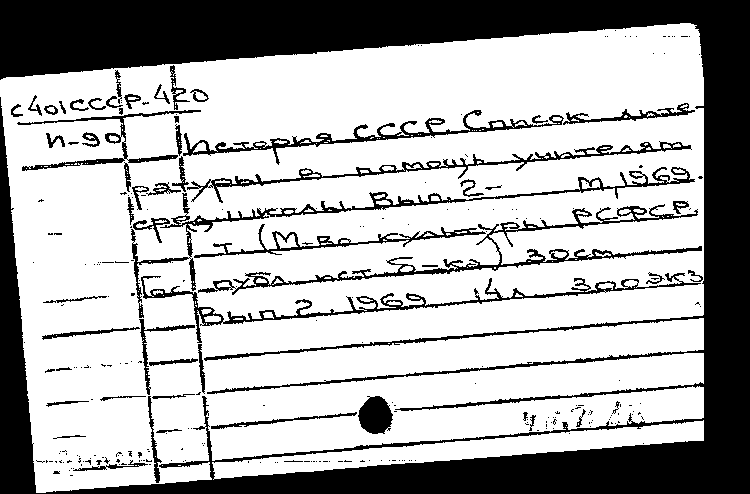 с401СССР-420
И-90
История СССР. Список лите-
ратуры в помощь учителям
сред. школы. Вып. 2- М., 1969.
т. (М-во культуры РСФСР.
Гос публ ист б-ка) 30см.
Вып. 2. 1969 14л 300экз